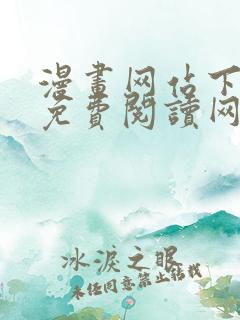 漫畫网站下
免費閱讀网
冰淚之眼
未任同意禁止轉載